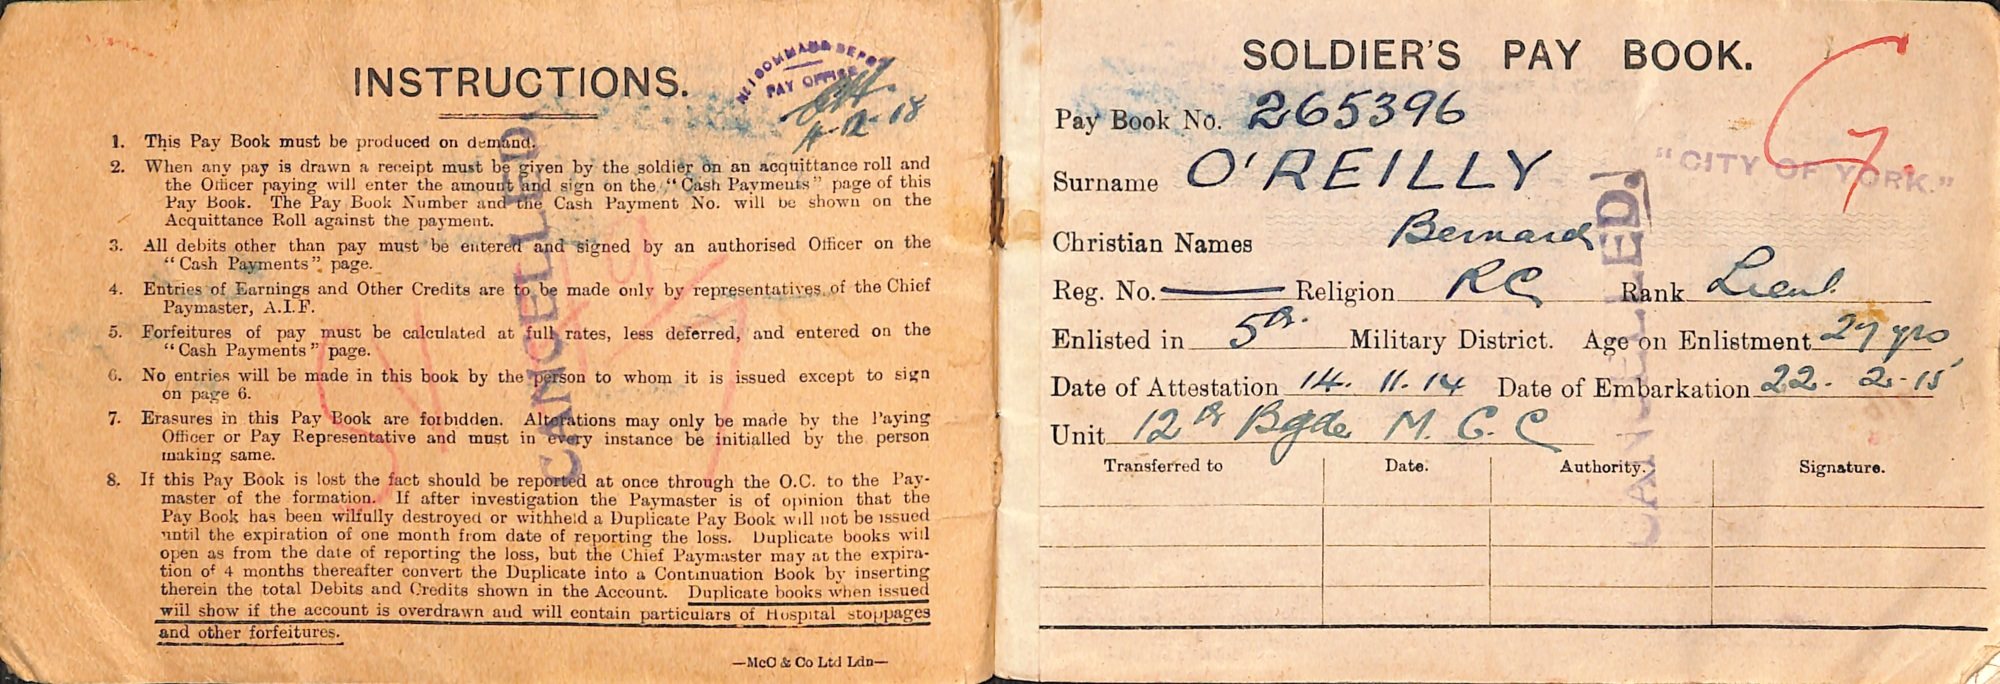 INSTRUCTIONS.
No. 1 COMMAND DEPOT
PAY OFFICE
4-12-18
1. This Pay Book must be produced on demand.
2. When any pay is drawn a receipt must be given by the soldier on an acquittance roll and
the Officer paying will enter the amount and sign on the "Cash Payments" page of this
Pay Book. The Pay Book Number and the Cash Payment No. will be shown on the
Acquittance Roll against the payment.
3. All debits other than pay must be entered and signed by an authorised Officer on the
"Cash Payments" page.
4. Entries of Earnings and Other Credits are to be made only by representatives of the Chief
Paymaster, A.I.F.
5. Forfeitures of pay must be calculated at full rates, less deferred, and entered on the
"Cash Payments" page.
6. No entries will be made in this book by the person to whom it is issued except to sign
on page 6.
7. Erasures in this Pay Book are forbidden. Alterations may only be made by the Paying
Officer or Pay Representative and must in every instance be initialled by the person
making same.
8. If this Pay Book is lost the fact should be reported at once through the O.C. to the Pay-
master of the formation. If after investigation the Paymaster is of opinion that the
Pay Book has been wilfully destroyed or withheld a Duplicate Pay Book will not be issued
until the expiration of one month from date of reporting the loss. Duplicate books will
open as from the date of reporting the loss, but the Chief Paymaster may at the expira-
tion of 4 months thereafter convert the Duplicate into a Continuation Book by inserting
therein the total Debits and Credits shown in the Account. Duplicate books when issued
will show if the account is overdrawn and will contain particulars of Hospital stoppages
and other forfeitures.
—McC & Co Ltd Ldn—
CANCELLED
SOLDIER'S PAY BOOK.
Pay Book No. 265396
G.
"CITY OF YORK."
Surname O'REILLY
Christian Names Bernard
Reg. No. Religion RC Rank Lieut.
Enlisted in 5th. Military District. Age on Enlistment 27 yrs
Date of Attestation 14. 11. 14 Date of Embarkation 22. 2. 15
Unit 12th Bgde M. G. C
Transferred to Date. Authority. Signature.
CANCELLED.